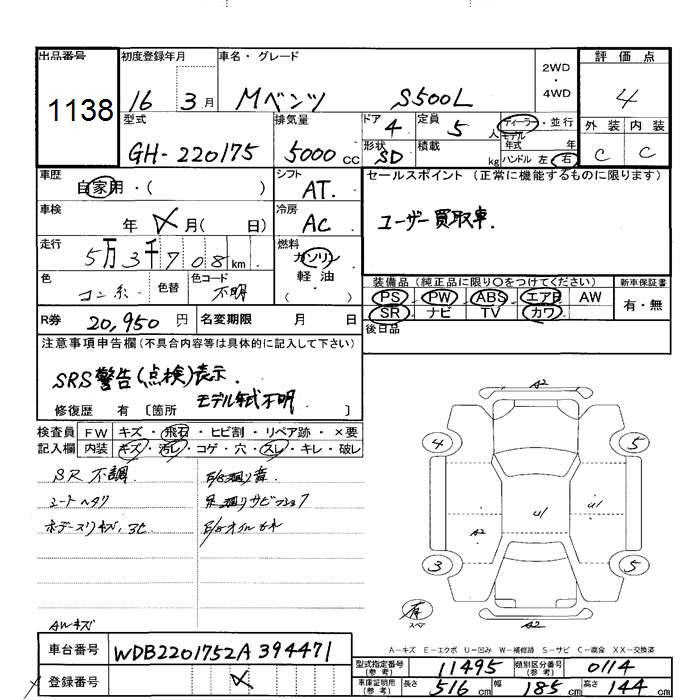 出品番号 初度登録年月 車名・グレード 2WD・4WD 評価点
1138 16 3月 Mベンツ S500L 4
型式 排気量 ドア 定員 ディーラー・並行 外装 内装
GH-220175 5000cc 4 5人 モデル年式 年 C C
形状 SD 積載 kg ハンドル 左 右
車歴 自家用・( ) シフト AT. セールスポイント (正常に機能するものに限ります)
車検 年 月( 日) 冷房 AC ユーザー買取車.
走行 5万3千708km 燃料 ガソリン 軽油 ( )
色 コン系 色替 色コード 不明 装備品(純正品に限り○をつけてください) 新車保証書
PS PW ABS エアB AW 有・無
SR ナビ TV カワ
R券 20,950円 名変期限 月 日 後日品
注意事項申告欄(不具合内容等は具体的に記入して下さい)
SRS警告(点検)表示.
モデル年式不明.
修復歴 有 〔箇所 〕
検査員 FW キズ・飛石・ヒビ割・リペア跡・×要
記入欄 内装 キズ・汚レ・コゲ・穴・スレ・キレ・破レ
SR 不調
シートヘタリ
AWキズ
A2
4 5
A2 U1 U1
3 5
A2
A-キズ E-エクボ U-凹み W-補修跡 S-サビ C-腐食 XX-交換済
車台番号 WDB2201752A394471
登録番号
型式指定番号(参考) 11495 類別区分番号(参考) 0114
車庫証明用(参考) 長さ 516cm 幅 185cm 高さ 144cm